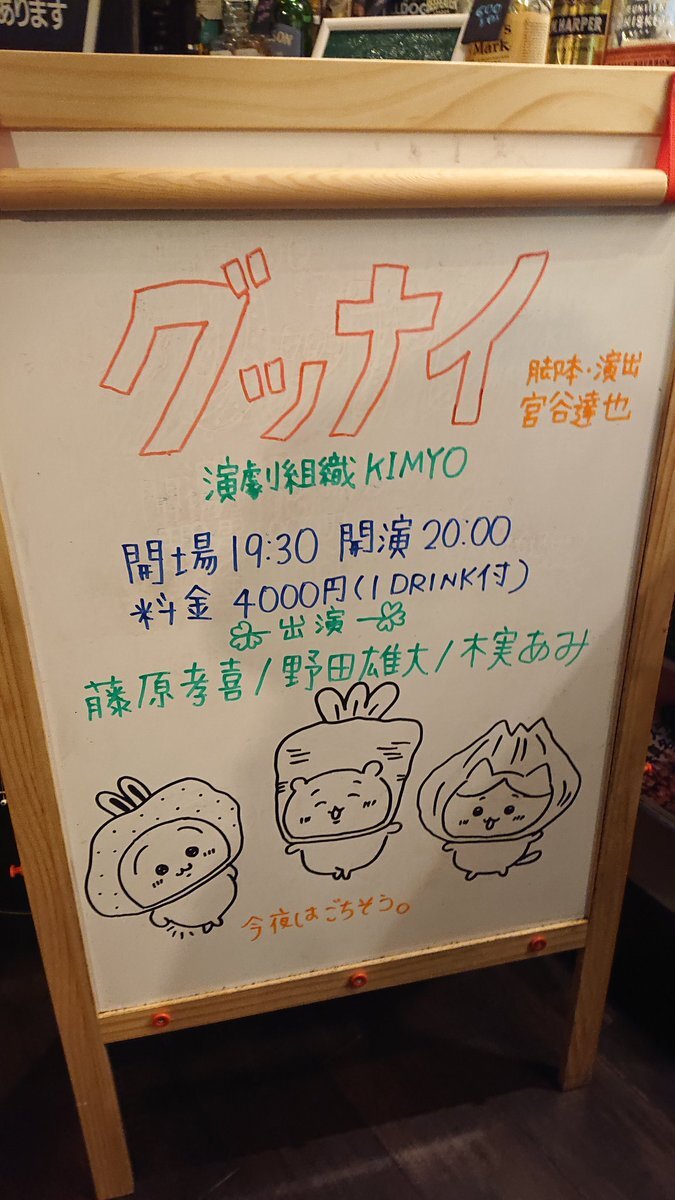 あります
Mark
HARPER
グッナイ
脚本・演出
宮谷達也
演劇組織KIMYO
開場19:30 開演20:00
料金 4000円(1DRINK付)
出演
藤原孝喜/野田雄大/木実あみ
今夜はごちそう。